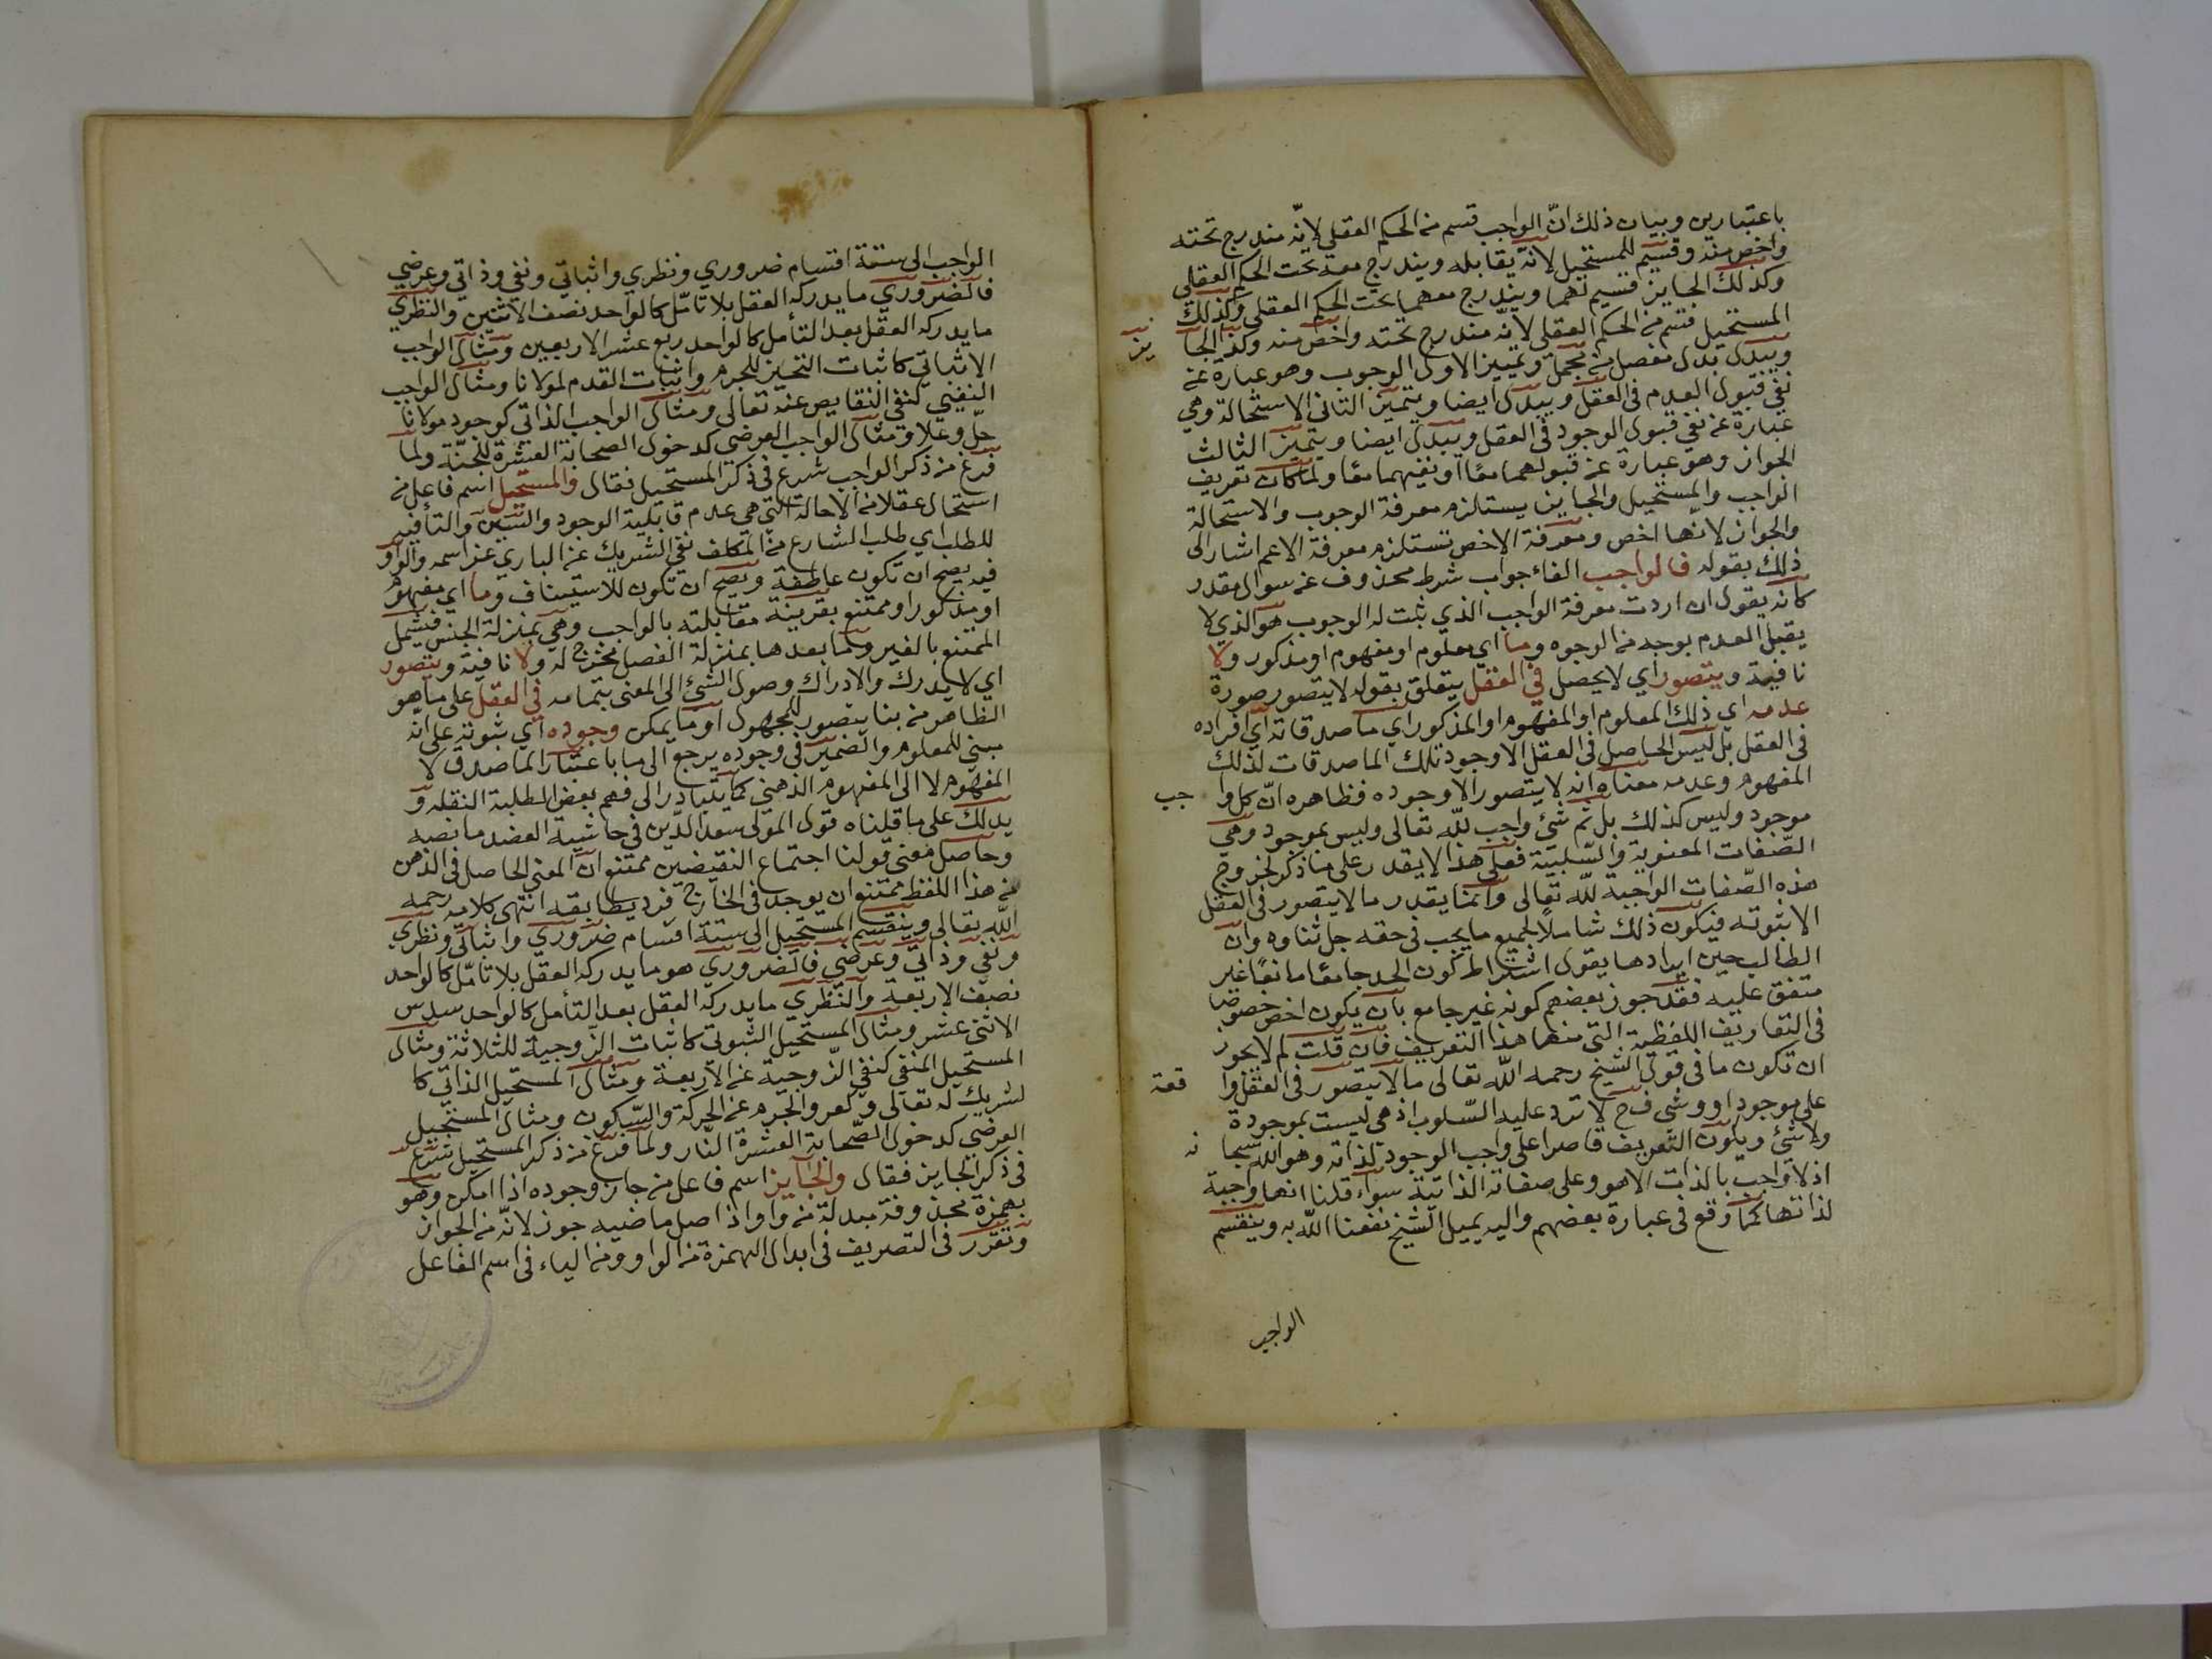 باعتبارين وبيان ذلك انّ الواجب قسم من الحكم العقلي لانّه مندرج تحته
واخص منه وقسيم للمستحيل لانّه يقابله ويندرج معه تحت الحكم العقلي
وكذلك الجايز قسيم لهما ويندرج معهما تحت الحكم العقلي وكذلك
المستحيل قسم من الحكم العقلي لانّه مندرج تحته واخص منه وكذا الجا
يز
ويبدل بدل مفصل من مجمل وتمييز الاول الوجوب وهو عبارة عن
نفي قبول العدم في العقل ويبدل ايضا ويتميز الثاني الاستحالة وهي
عبارة عن نفي قبول الوجود في العقل ويبدل ايضا ويتميز الثالث
الجواز وهو عبارة عن قبولهما معًا او نفيهما معًا ولما كان تعريف
الواجب والمستحيل والجايز يستلزم معرفة الوجوب والاستحالة
والجواز لانّها اخص ومعرفة الاخص تستلزم معرفة الاعم اشار الى
ذلك بقوله فالواجب الفاء جواب شرط محذوف عن سوال مقدر
كانه يقول ان اردت معرفة الواجب الذي ثبت له الوجوب هو الذي لا
يقبل العدم بوجه من الوجوه وما اي معلوم او مفهوم او مذكور ولا
نافية ويتصور اي لا يحصل في العقل يتعلق بقوله لا يتصور صورة
عدمه اي ذلك المعلوم او المفهوم او المذكور اي ماصدقاته اي افراده
في العقل بل ليس الحاصل في العقل الا وجود تلك الماصدقات لذلك
المفهوم وعدمه معناه انه لا يتصور الا وجوده فظاهره انّ كل وا
جب
موجود وليس كذلك بل ثم شئ واجب للّه تعالى وليس بموجود وهي
الصّفات المعنوية والسّلبيّة فعلى هذا لا يقدر على ما ذكر لخروج
هذه الصّفات الواجبة للّه تعالى وانما يقدر ما لا يتصور في العقل
الا ثبوته فيكون ذلك شاملًا لجميع ما يجب في حقه جل ثناوه وان
الطالب حين ايرادها يقول اشتراط كون الحد جامعًا مانعًا غير
متفق عليه فقد جوز بعضهم كونه غير جامع بان يكون اخص خصوصًا
في التعاريف اللفظية التي منها هذا التعريف فان قلت لم لا يجوز
ان تكون ما في قول الشيخ رحمه اللّه تعالى ما لا يتصور في العقل وا
قعة
على موجود او وشي ف ح لا ترد عليه السّلوب اذ هي ليست بموجودة
ولا شئ ويكون التّعريف قاصرا على واجب الوجود لذاته وهو الله سبحا
نه
اذ لا واجب بالذات الا هو وعلى صفاته الذاتية سواء قلنا انها واجبة
لذاتها كما وقع في عبارة بعضهم واليه يميل الشيخ نفعنا اللّه به وينقسم
الواجب
الواجب الى ستة اقسام ضروري ونظري واثباتي ونفي وذاتي وعرضي
فالضروري ما يدركه العقل بلا تأمّل كالواحد نصف الاثنين والنظري
ما يدركه العقل بعد التأمل كالواحد ربع عشر الاربعين ومثال الواجب
الاثباتي كاثبات التحيز للجرم واثبات القدم لمولانا ومثال الواجب
النفيي كنفي النقايص عنه تعالى ومثال الواجب الذاتي كوجود مولانا
جلّ وعلا ومثال الواجب العرضي كدخول الصحابة العشرة للجنّة ولما
فرغ من ذكر الواجب شرع في ذكر المستحيل فقال والمستحيل اسم فاعل من
استحال عقلا من الاحالة التي هي عدم قابلية الوجود والسّين والتاء فيه
للطلب اي طلب الشارع من المكلف نفي الشريك عن الباري عز اسمه والواو
فيه يصح ان تكون عاطفة ويصح ان تكون للاستيناف وما اي مفهوم
او مذكور او ممتنع بقرينة مقابلته بالواجب وهي بمنزلة الجنس فيشمل
الممتنع بالغير وما بعدها بمنزلة الفصل مخرج له ولا نافية ويتصور
اي لا يدرك والادراك وصول الشئ الى المعنى بتمامه في العقل على ما هو
الظاهر من بنا يتصور للمجهول او ما يمكن وجوده اي ثبوته على انّه
مبني للمعلوم والضمير في وجوده يرجع الى ما باعتبار الماصدق لا
المفهوم لا الى المفهوم الذهني كما يتبادر الى فهم بعض الطلبة النقلة و
يدلك على ما قلناه قول المولى سعد الدّين في حاشية العضد ما نصه
وحاصل معنى قولنا اجتماع النقيضين ممتنع انّ المعنى الحاصل في الذهن
من هذا اللفظ ممتنع ان يوجد في الخارج فرد يطابقه انتهى كلامه رحمه
اللّه تعالى وينقسم المستحيل الى ستة اقسام ضروري واثباتي ونظري
ونفي وذاتي وعرضي فالضروري هو ما يدركه العقل بلا تأمّل كالواحد
نصف الاربعة والنّظري ما يدركه العقل بعد التأمل كالواحد سدس
الاثنى عشر ومثال المستحيل الثبوتي كاثبات الزّوجية للثلاثة ومثال
المستحيل المنفي كنفي الزّوجية عن الاربعة ومثال المستحيل الذاتي كا
لشريك له تعالى وكعرو الجرم عن الحركة والسّكون ومثال المستحيل
العرضي كدخول الصّحابة العشرة النّار ولما فرغ من ذكر المستحيل شرع
في ذكر الجايز فقال والجايز اسم فاعل من جاز وجوده اذا امكن وهو
بهمزة محذوفة مبدلة من واو اذ اصل ماضيه جوز لانّه من الجواز
وتقرر في التصريف في ابدال الهمزة من الواو ومن الياء في اسم الفاعل